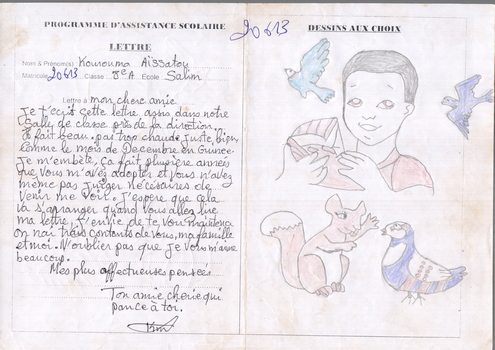 PROGRAMME D'ASSISTANCE SCOLAIRE
20613
DESSINS AUX CHOIX
LETTRE
Nom & Prénom(s) Kourouma Aïssatou
Matricule 20613 Classe 8e A Ecole Salim
Lettre à mon chere amie
Je t'ecrit cette lettre assra dans notre
Salle de classe près de la direction.
Il fait beau, pas trop chaude juste bien
comme le mois de Decembre en Guinée
Je m'embête, ça fait plusiere années
que vous m'avez adopter et vous n'avez
même pas jurger nécessaires de
venir me voir. J'espere que cela
va s'arranger quand vous allez lire
ma lettre. J'envie de te voir maintenant
on nai trais contents de vous, ma famille
et moi. N'oublier pas que je vous m'aime
beaucoup.
Mes plus affectueuses pensées
Ton amie cherie qui
pance à toi.